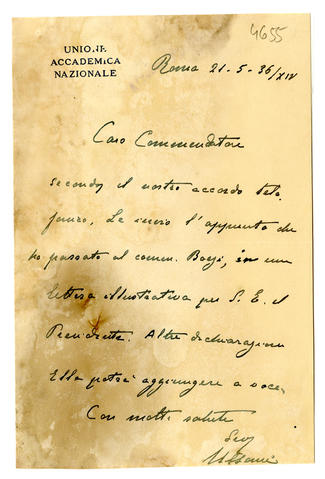 4655
UNIONE
ACCADEMICA
NAZIONALE
Roma 21-5-36/XIV
Caro Commendatore
secondo il nostro accordo tele
fonico, Le invio l'appunto che
ho passato al comm. in una
lettera illustrativa per S. E. il
Presidente. Altre dichiarazioni
Ella potrà aggiungere a voce.
Con molti saluti
Suo